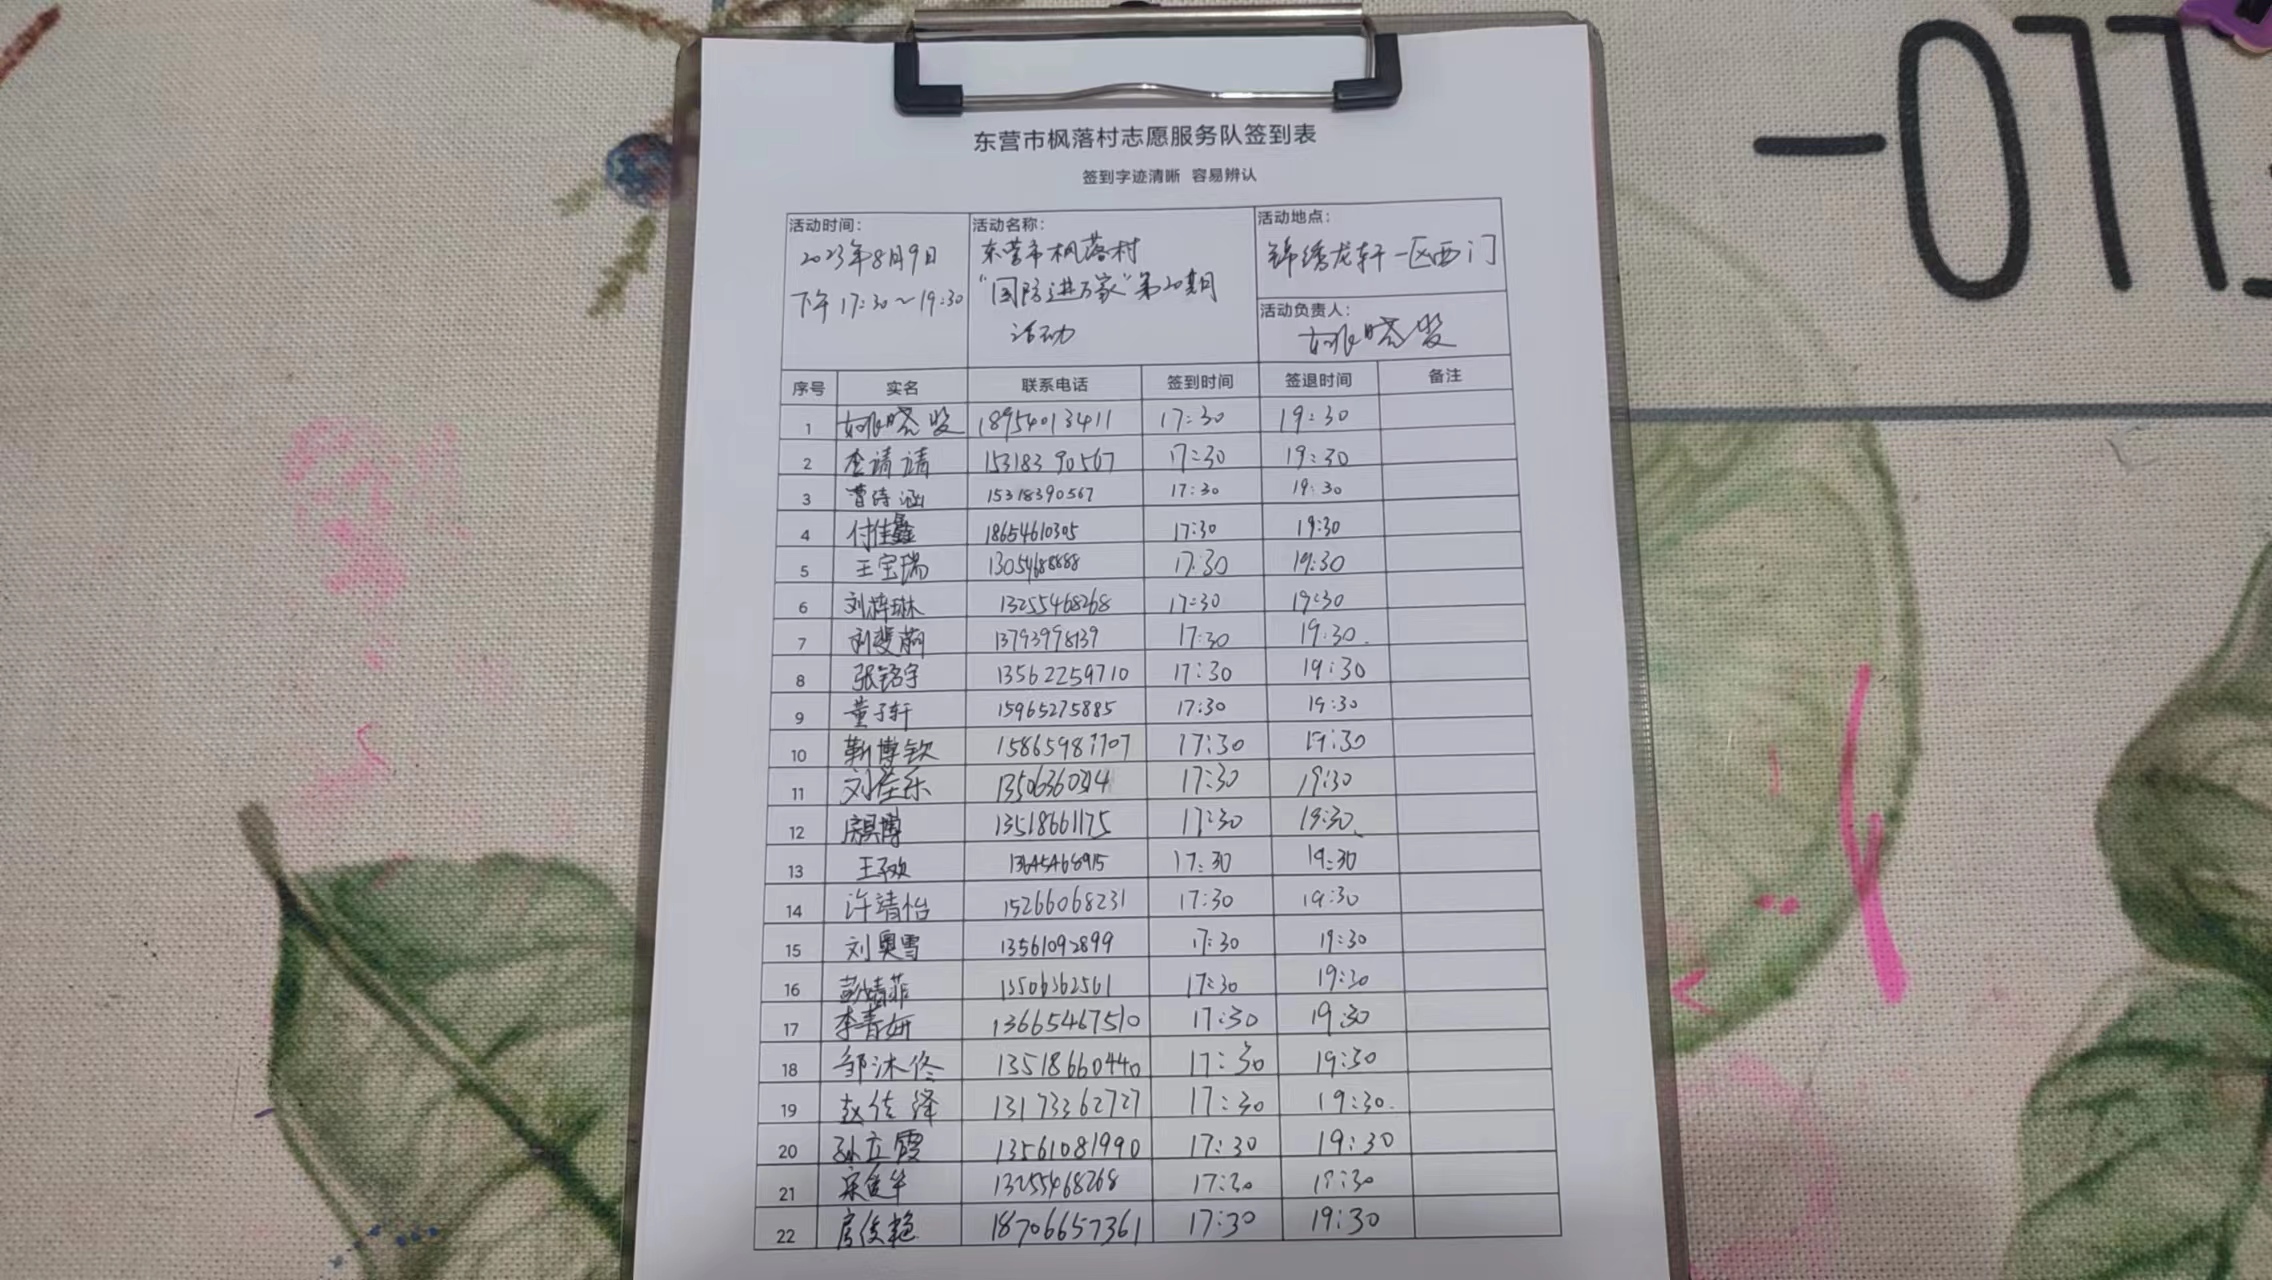 东营市枫落村志愿服务队签到表
签到字迹清晰 容易辨认
活动时间：
2023年8月9日
下午 17:30～19:30
活动名称：
东营市枫落村
“国防进万家”第20期
活动
活动地点：
锦绣龙轩一区西门
活动负责人：
姚晓
序号 实名 联系电话 签到时间 签退时间 备注
1 姚晓 18954013411 17:30 19:30
2 李请请 15318390567 17:30 19:30
3 曹诗涵 15318390567 17:30 19:30
4 付佳鑫 18654610305 17:30 19:30
5 王宝瑞 13054688888 17:30 19:30
6 刘梓琳 13255468268 17:30 19:30
7 刘斐 13793998139 17:30 19:30
8 张铭宇 13562259710 17:30 19:30
9 董子轩 15965275885 17:30 19:30
10 靳博钦 17:30 19:30
11 刘 17:30 19:30
12 博 13518661175 17:30 19:30
13 王 17:30 19:30
14 许靖怡 15266068231 17:30 19:30
15 刘奥雪 13561092899 17:30 19:30
16 彭婧菲 13506362561 17:30 19:30
17 李青妍 13665467510 17:30 19:30
18 邹沐佟 13518660440 17:30 19:30
19 赵佳泽 13173362727 17:30 19:30
20 孙立霞 13561081990 17:30 19:30
21 宋 13255468268 17:30 19:30
22 房俊艳 18706657361 17:30 19:30